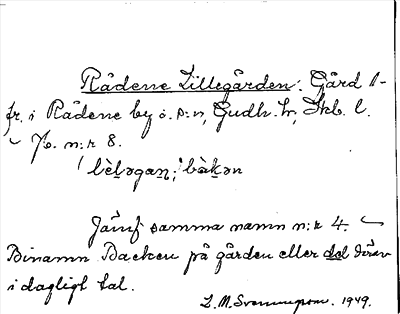 Rådene Lillegården: Gård 1-
fr. i Rådene by o. s:n, Gudh. hr, Skb. l.
Jb. n:r 8.
Jämf samma namn n:r 4.
Binamn Backen på gården eller del därav
i dagligt tal.
1949.